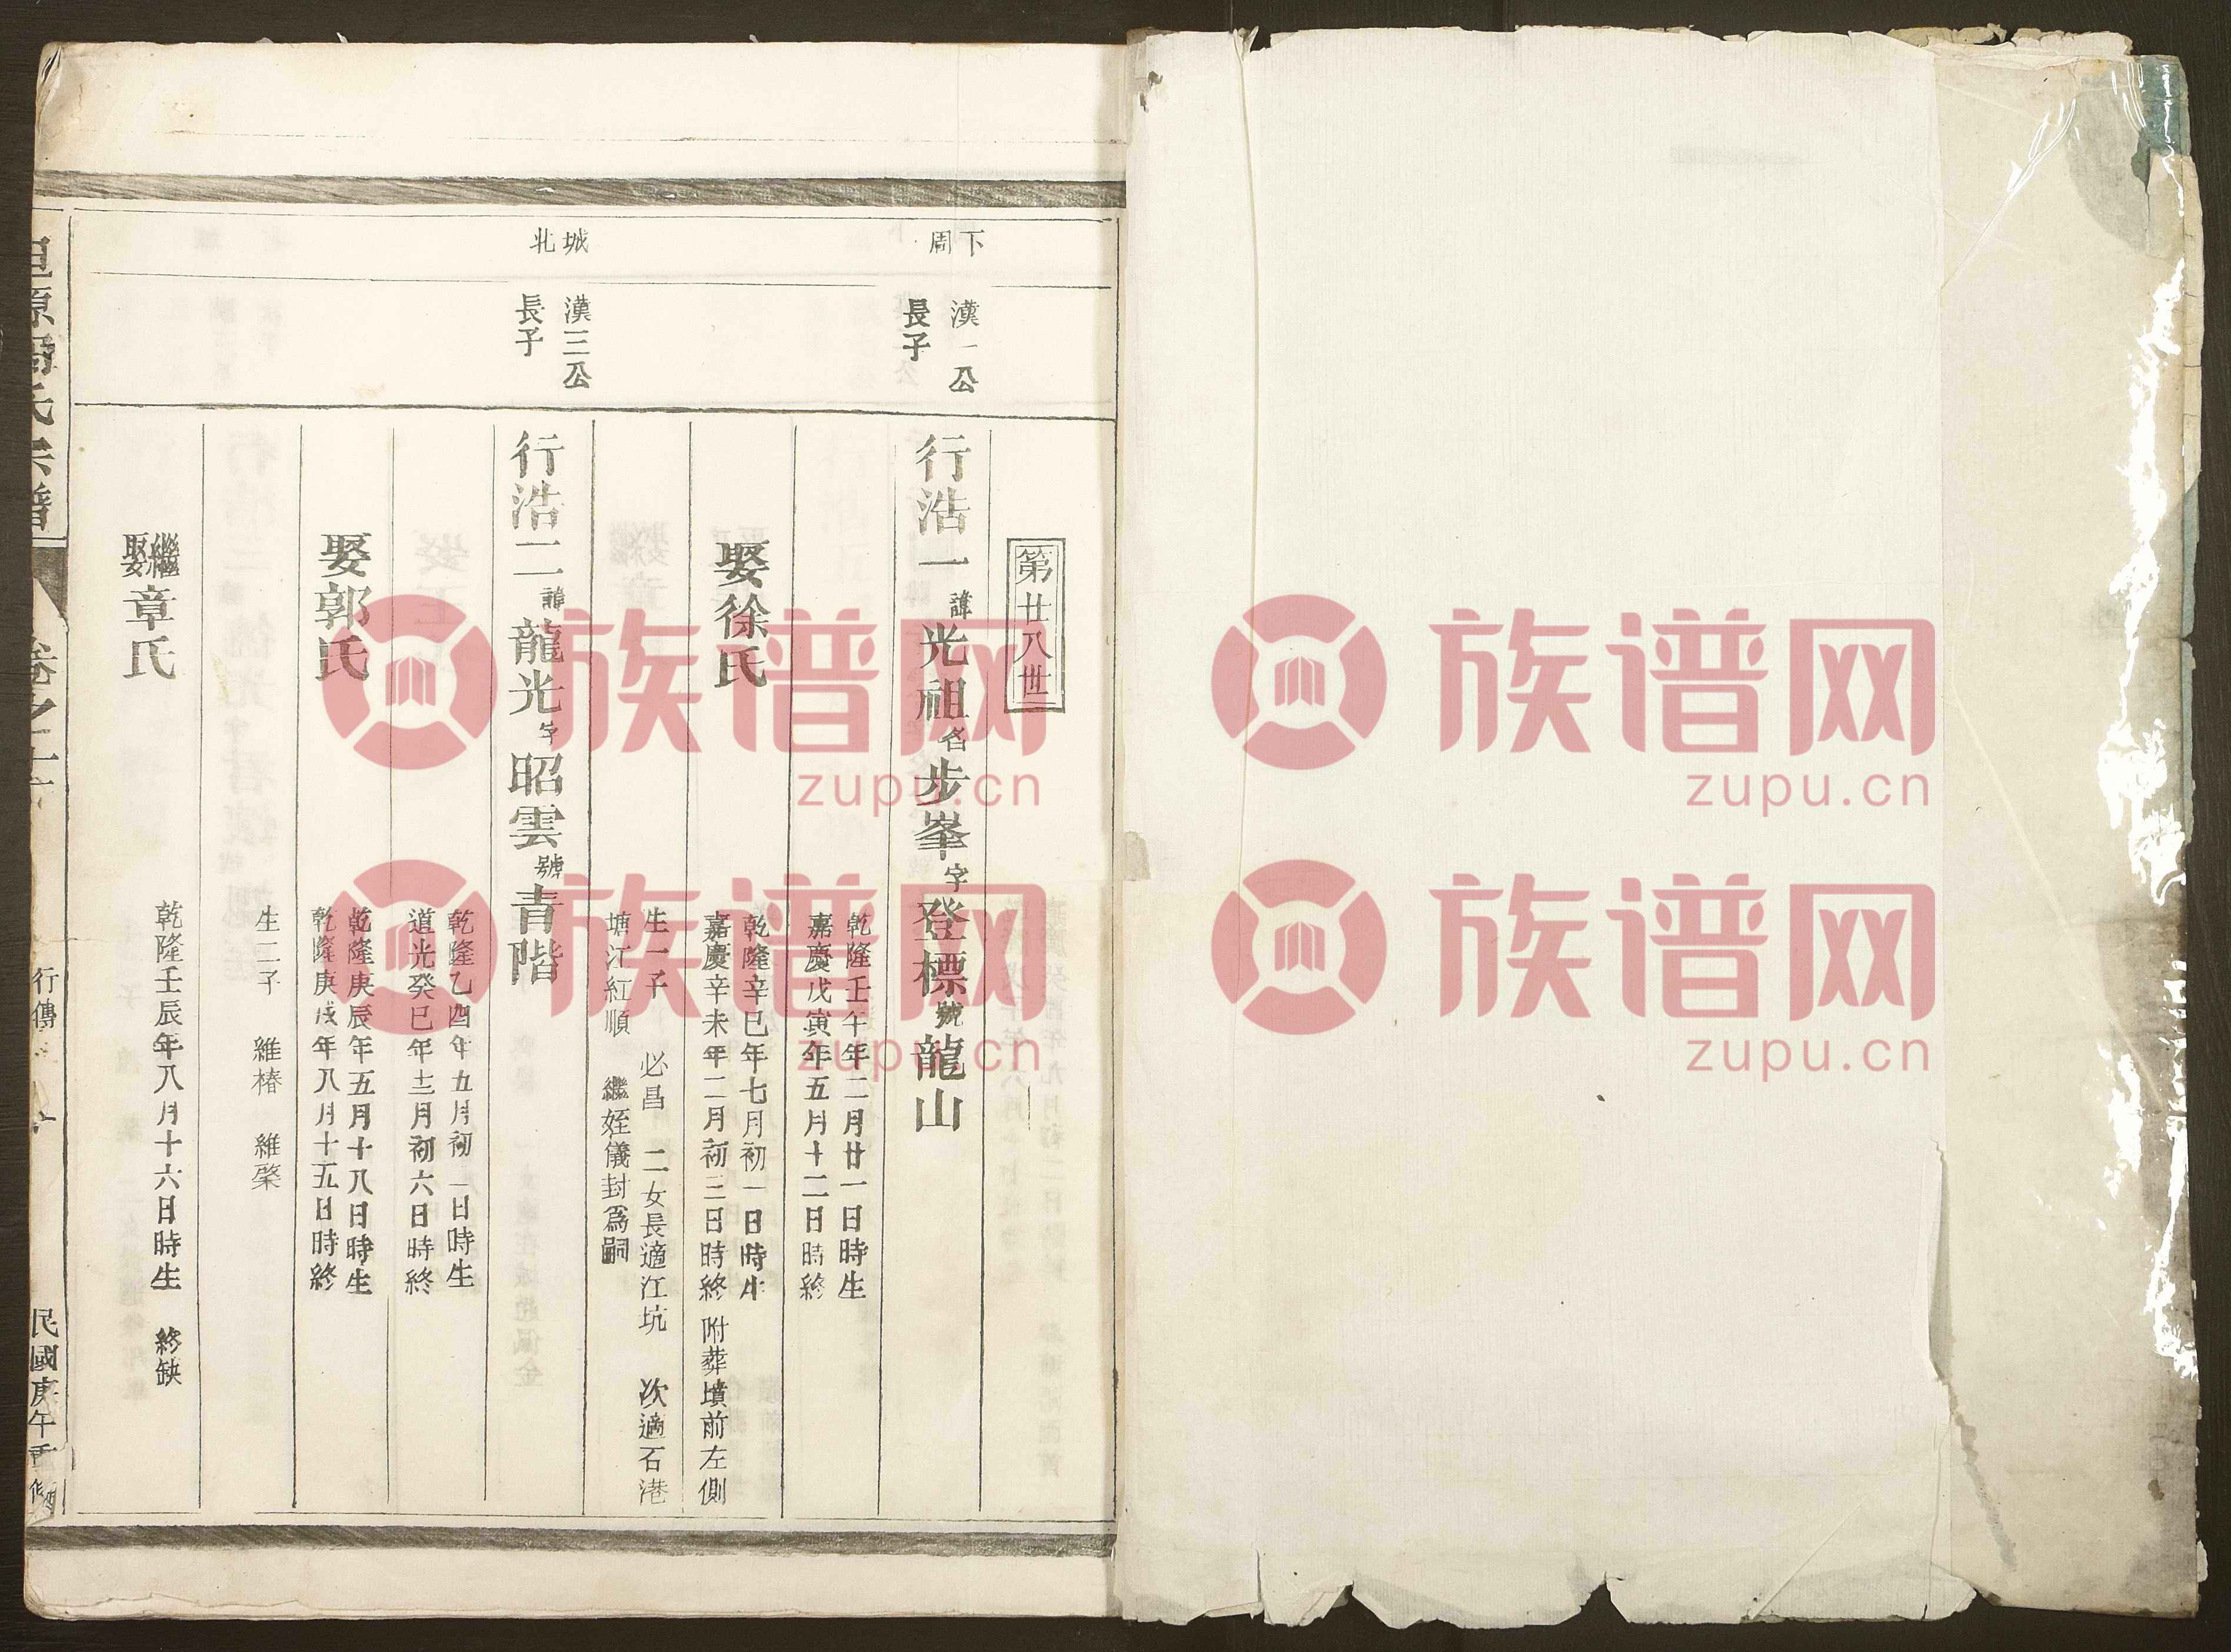 第廿八世
下周
漢一公
長子
行浩一諱光祖名步峯字登標號龍山
乾隆壬午年二月廿一日時生
嘉慶戊寅年五月十二日時終
娶徐氏
乾隆辛巳年七月初一日時生
嘉慶辛未年二月初三日時終 附葬墳前左側
生一子 必昌 二女長適江坑 次適石港
塘江紅順 繼姪儀封爲嗣
城北
漢三公
長子
行浩二諱龍光字昭雲號青階
乾隆乙酉年九月初一日時生
道光癸巳年十二月初六日時終
娶郭氏
乾隆庚辰年五月十八日時生
乾隆庚戌年八月十五日時終
生二子 維椿 維棨
繼娶章氏
乾隆壬辰年八月十六日時生 終缺
氏宗譜
卷之
行傳
民國庚午重修
族谱网
zupu.cn
族谱网
zupu.cn
族谱网
zupu.cn
族谱网
zupu.cn